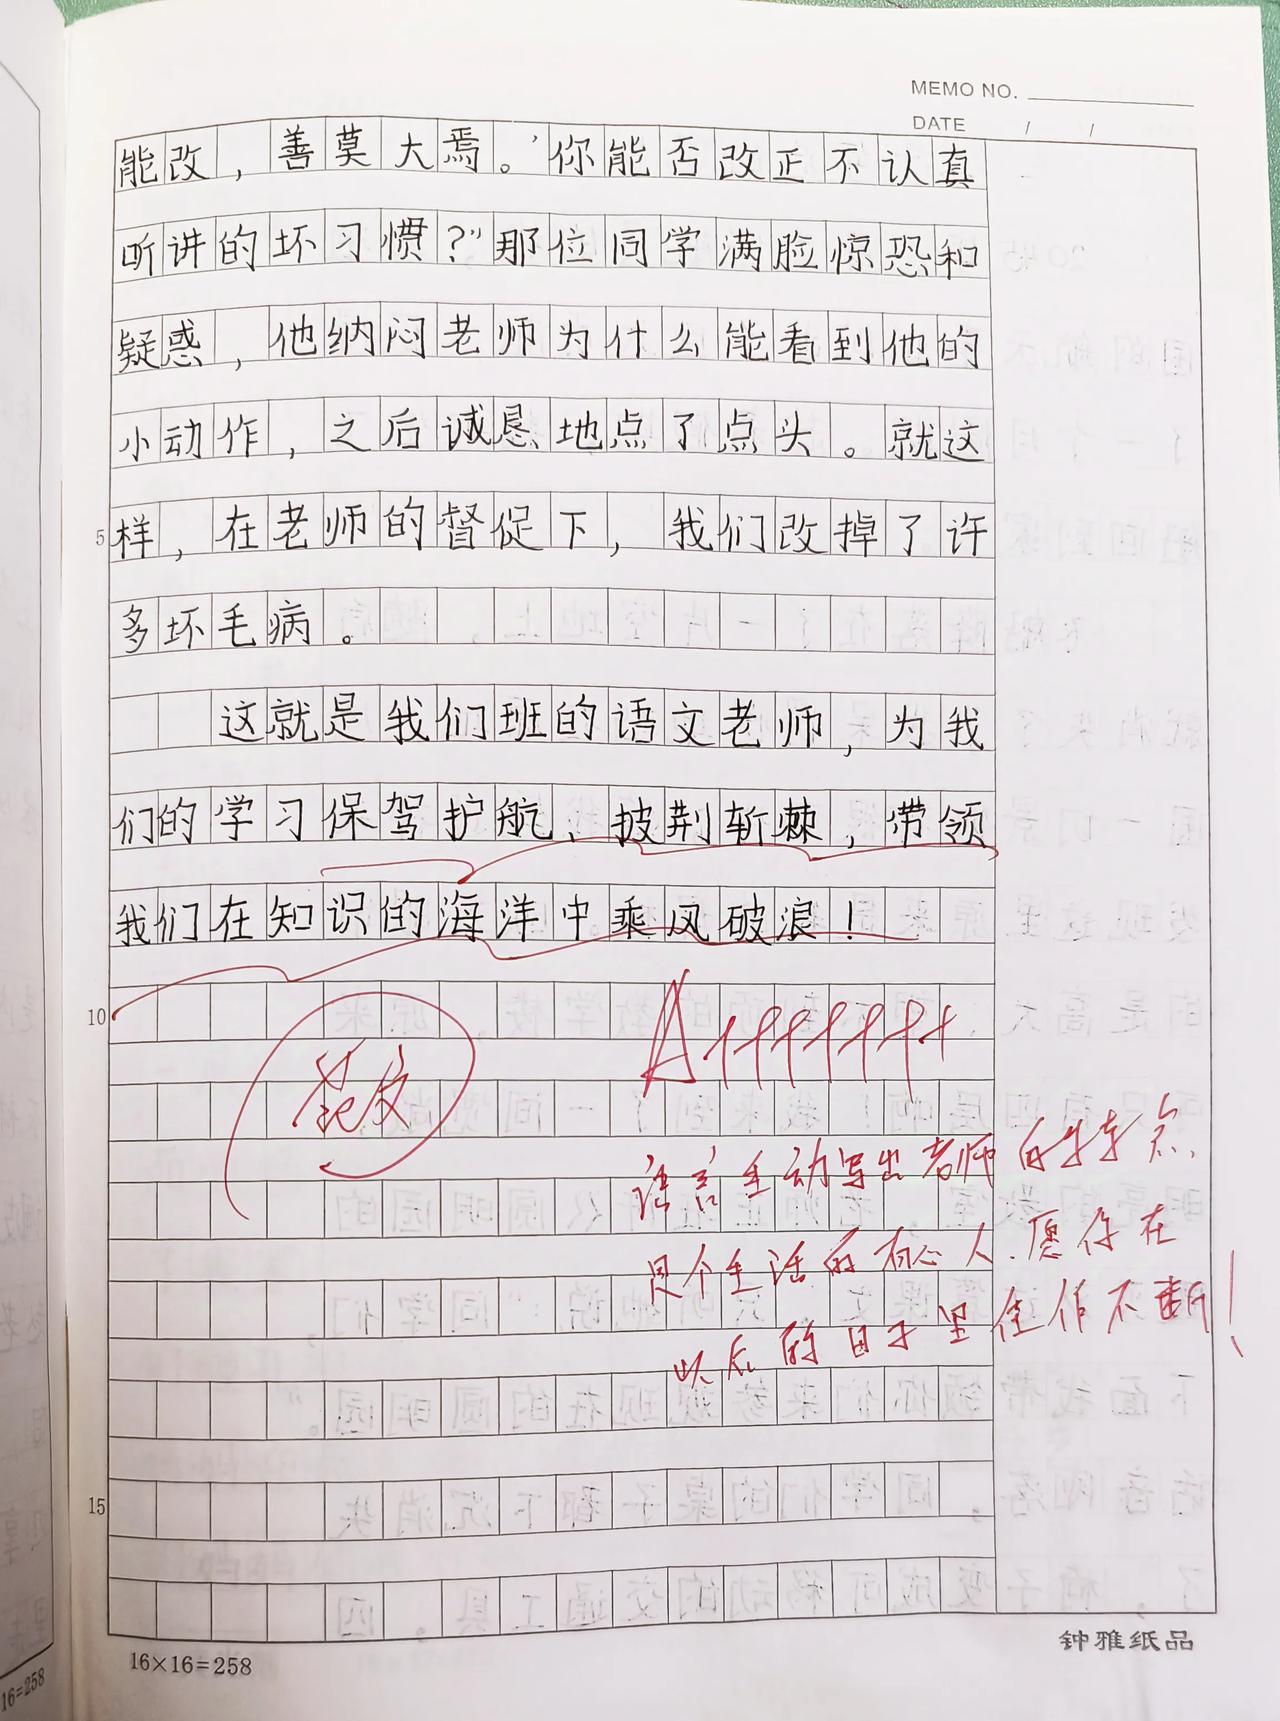 MEMO NO.
DATE / /
能改，善莫大焉。’你能否改正不认真
听讲的坏习惯？”那位同学满脸惊恐和
疑惑，他纳闷老师为什么能看到他的
小动作，之后诚恳地点了点头。就这
5
样，在老师的督促下，我们改掉了许
多坏毛病。
这就是我们班的语文老师，为我
们的学习保驾护航、披荆斩棘，带领
我们在知识的海洋中乘风破浪！
10
范文
A+++++++
语言生动写出老师的特点，
是个生活的有心人.愿你在
以后的日子里佳作不断！
15
16×16=258
钟雅纸品
16=258